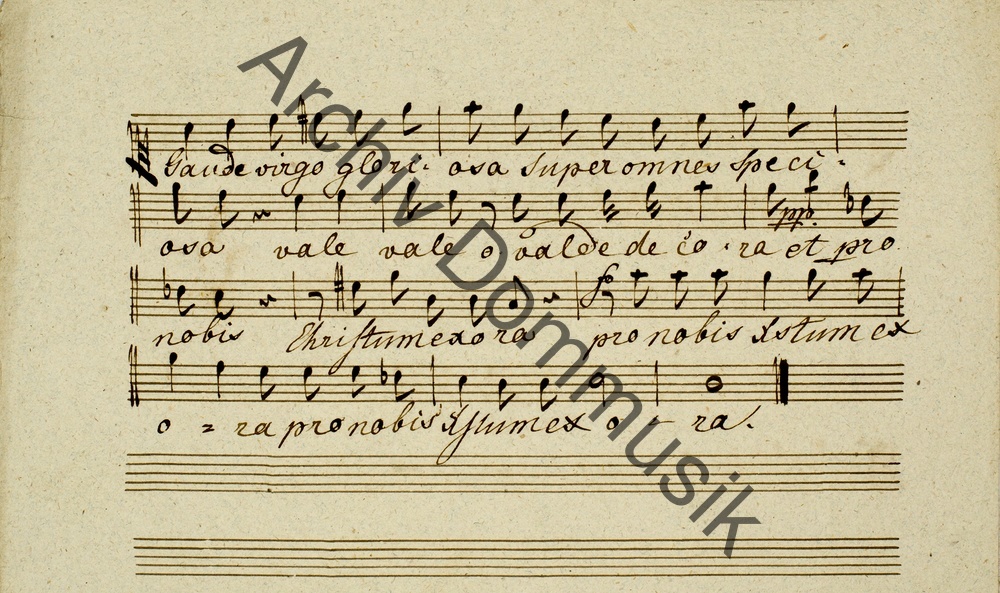 Gaude virgo glori- osa super omnes speci-
osa vale vale o valde deco-ra et pro
ppo.
nobis Christum exora pro nobis Xstum ex
o = ra pro nobis Xstum ex o - ra.
Archiv Dommusik